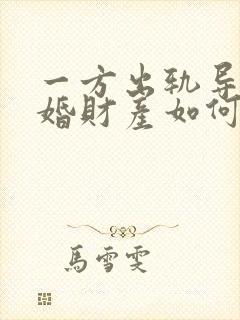 一方出轨导
婚財産如何
馬雪雯